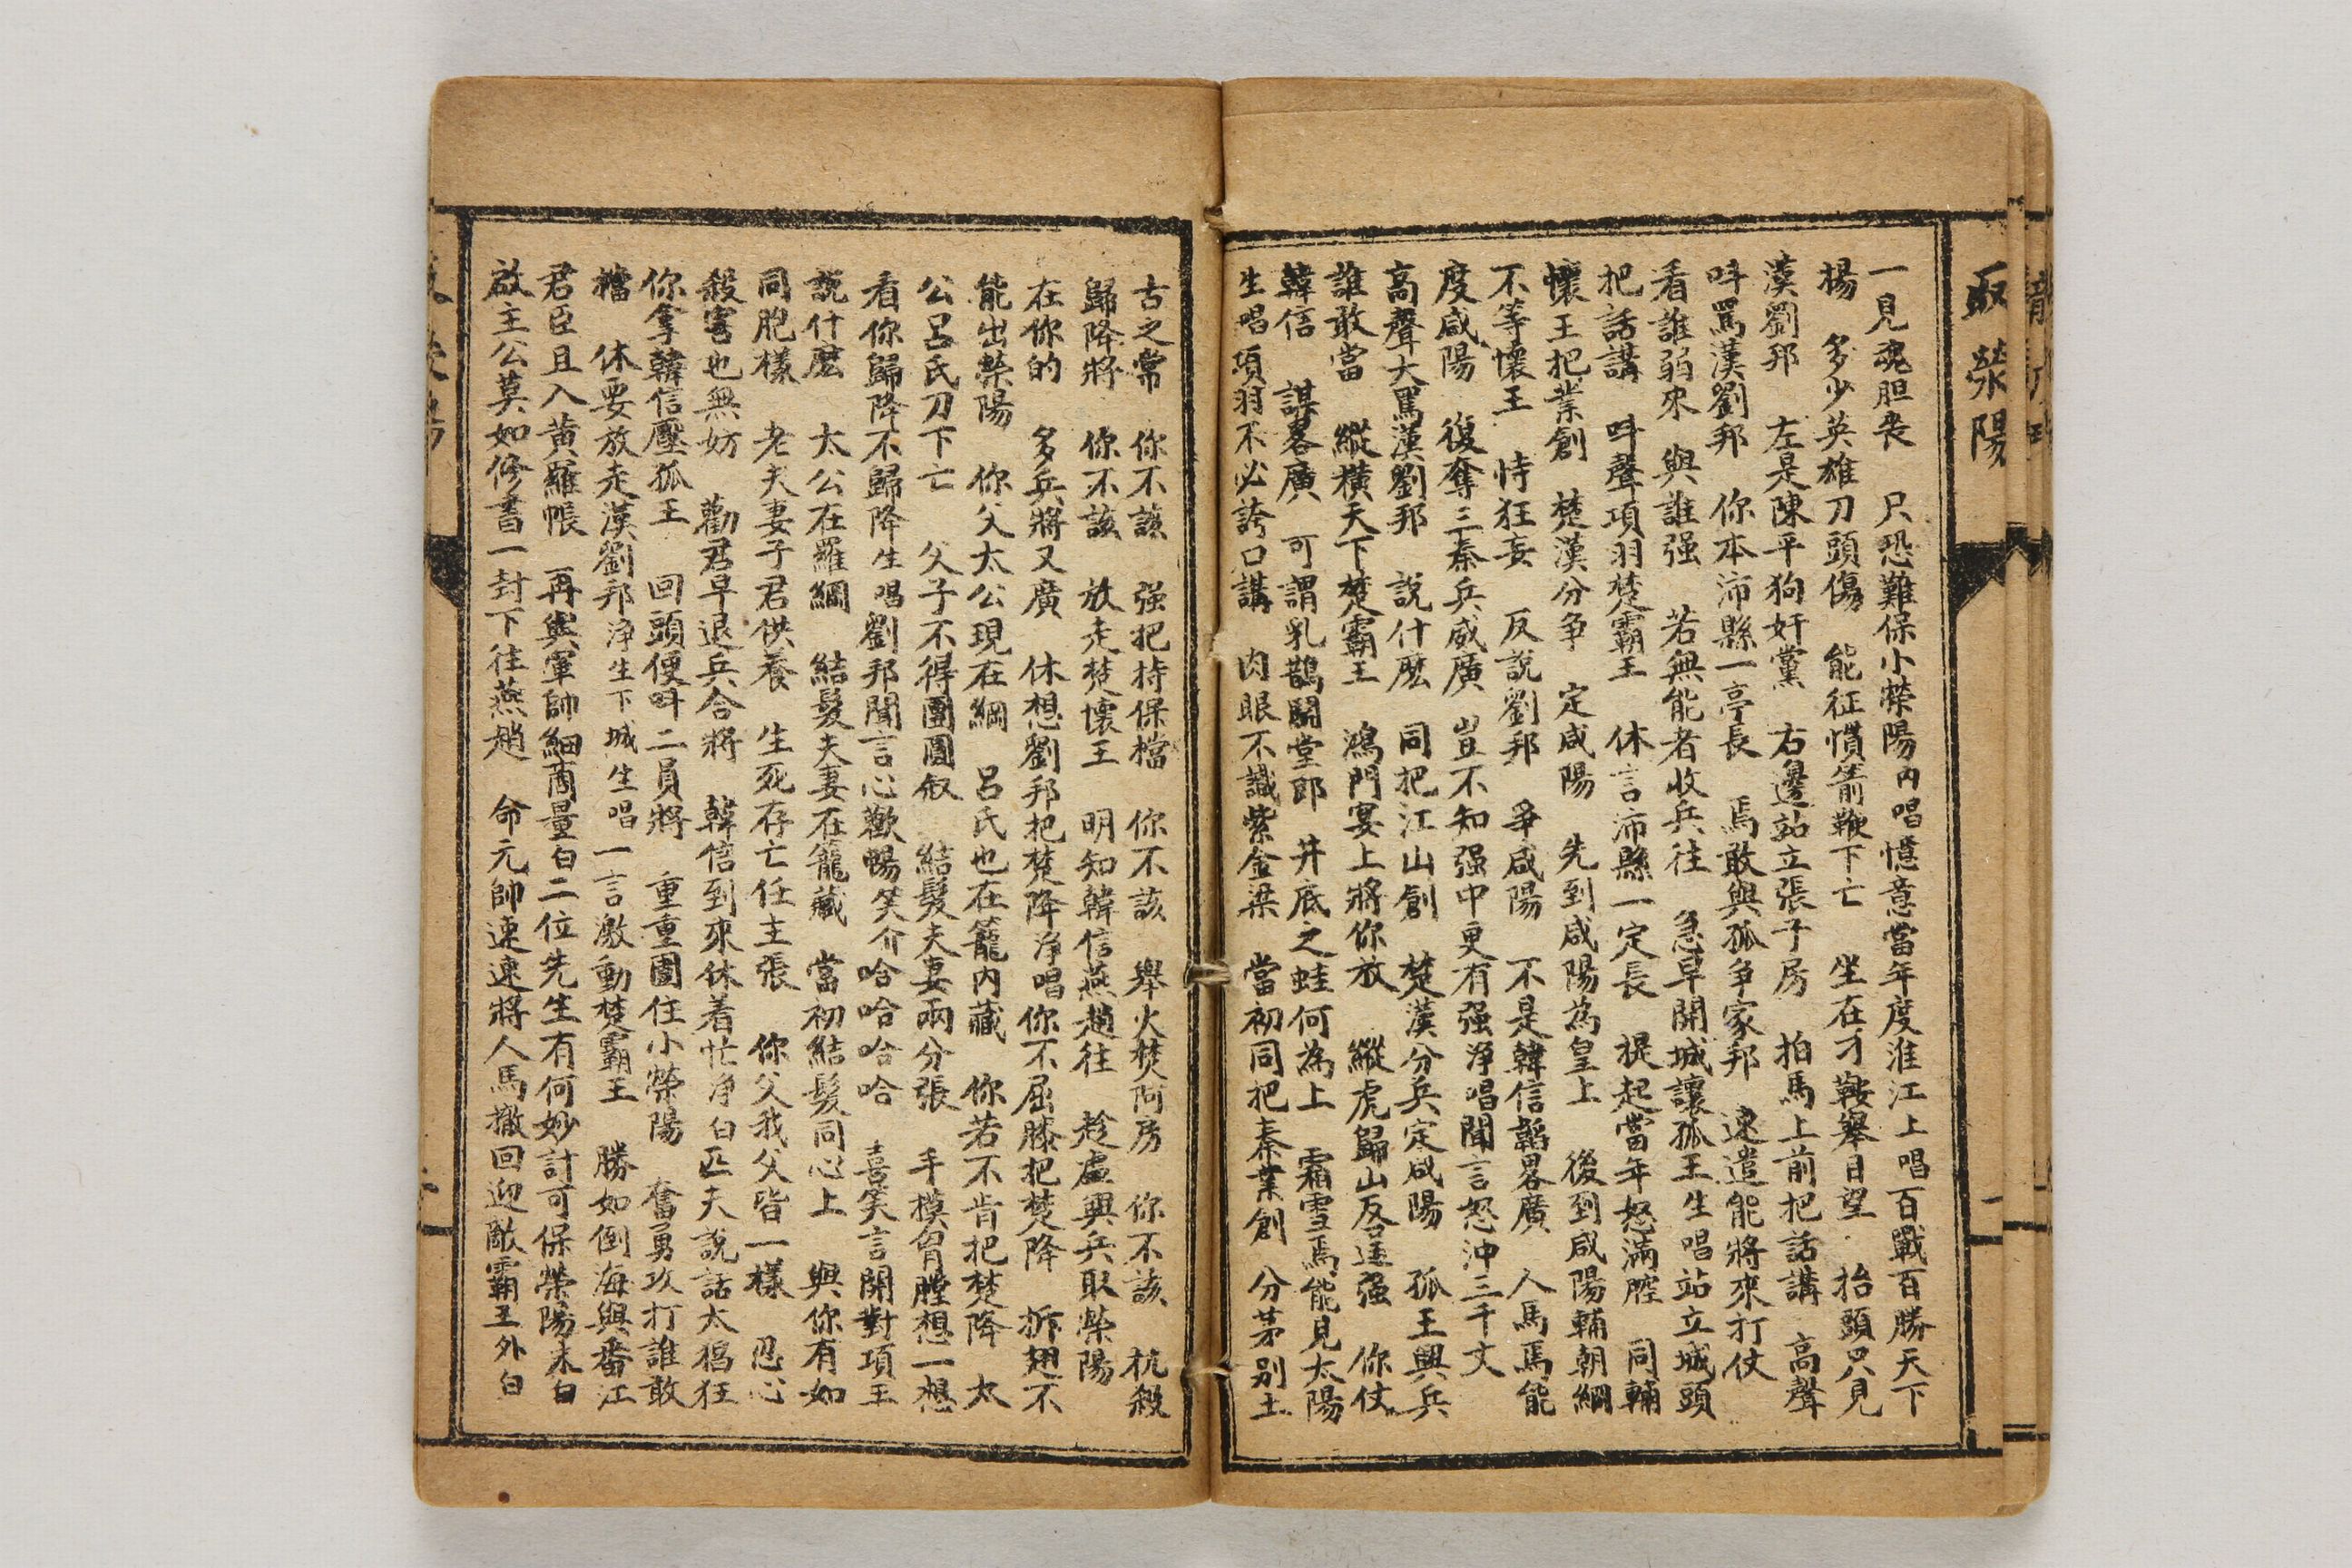 取滎陽
一見魂胆丧 只恐難保小滎陽內唱憶意當年度淮江上唱百戰百勝天下
楊 多少英雄刀頭傷 能征慣箭鞭下亡 坐在才鞍舉目望 抬頭只見
漢劉邦 左是陳平狗奸黨 右邊站立張子房 拍馬上前把話講 高聲
呌罵漢劉邦 你本沛縣一亭長 焉敢與孤爭家邦 速遣能將來打仗
看誰弱來 與誰强 若無能者收兵往 急早開城讓孤王生唱站立城頭
把話講 呌聲項羽楚霸王 休言沛縣一定長 提起當年怒滿腔 同輔
懷王把業創 楚漢分爭 定咸陽 先到咸陽為皇上 後到咸陽輔朝綱
不等懷王 恃狂妄 反說劉邦 爭咸陽 不是韓信韜畧廣 人馬焉能
度咸陽 復奪三秦兵威廣 豈不知强中更有强淨唱聞言怒沖三千丈
高聲大罵漢劉邦 說什麽 同把江山創 楚漢分兵定咸陽 孤王興兵
誰敢當 縱橫天下楚霸王 鴻門宴上將你放 縱虎歸山反逞强 你仗
韓信 謀畧廣 可謂乳鵲鬧堂郎 井底之蛙何為上 霜雪焉能見太陽
生唱項羽不必誇口講 肉眼不識紫金梁 當初同把秦業創 分茅别土
古之常 你不該 强把持保檔 你不該 舉火焚阿房 你不該 杭殺
歸降將 你不該 放走楚懷王 明知韓信燕趙往 趁虛興兵取滎陽
在你的 多兵將又廣 休想劉邦把楚降淨唱你不屈膝把楚降 拆翅不
能出滎陽 你父太公現在綱 呂氏也在籠內藏 你若不肯把楚降 太
公呂氏刀下亡 父子不得團圓叙 結髮夫妻兩分張 手摸胷膛想一想
看你歸降不歸降生唱劉邦聞言心歡暢笑介哈哈哈哈 喜笑言開對項王
說什麽 太公在羅綱 結髮夫妻在籠藏 當初結髮同心上 與你有如
同胞樣 老夫妻子君供養 生死存亡任主張 你父我父皆一樣 忍心
殺害也無妨 勸君早退兵合將 韓信到來休着忙淨白匹夫說話太猖狂
你拿韓信壓孤王 回頭便呌二員將 重重圍住小滎陽 奮勇攻打誰敢
檔 休要放走漢劉邦淨生下城生唱一言激動楚霸王 勝如倒海與番江
君臣且入黄羅帳 再與軍師細商量白二位先生有何妙討可保滎陽末白
啟主公莫如修書一封下往燕趙 命元帥速速將人馬撤回迎敵霸王外白